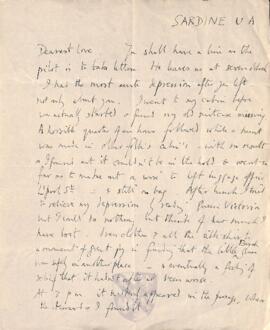 SARDINE U A
Dearest love You shall have a line as the
pilot is to take letters. He leaves us at seven o'clock
I had the most acute depression after you left
not only about you. I went to my cabin before
we actually started & found my old suitcase missing
A horrible quarter of an hour followed while a hunt
was made in other folk's cabins - with no result
I found out it couldn't be in the hold & went so
far as to make out a wire to left luggage office
& still no bag. After lunch I tried
to relieve my depression by reading Queen Victoria
but I could do nothing but think of how much I
have lost.
a moment of great joy in finding that the little Book
was safely in another place & eventually a feeling of
being that it hadn't after all been worse
At 2 p.m. it suddenly appeared in the passage, where
the steward & I found it